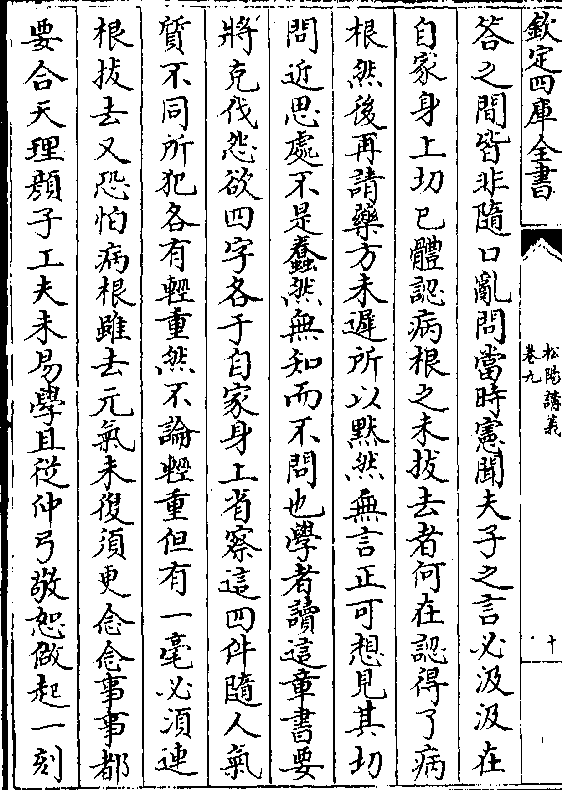 欽定四庫全書
松陽講義
卷九
十
答之間皆非隨口亂問當時憲聞夫子之言必汲汲在
自家身上切已體認病根之未拔去者何在認得了病
根然後再請藥方未遲所以默然無言正可想見其切
問近思處不是蠢然無知而不問也學者讀這章書要
將克伐怨欲四字各于自家身上省察這四件隨人氣
質不同所犯各有輕重然不論輕重但有一毫必須連
根拔去又恐怕病根雖去元氣未復須更念念事事都
要合天理顔子工夫未易學且從仲弓敬恕做起一刻